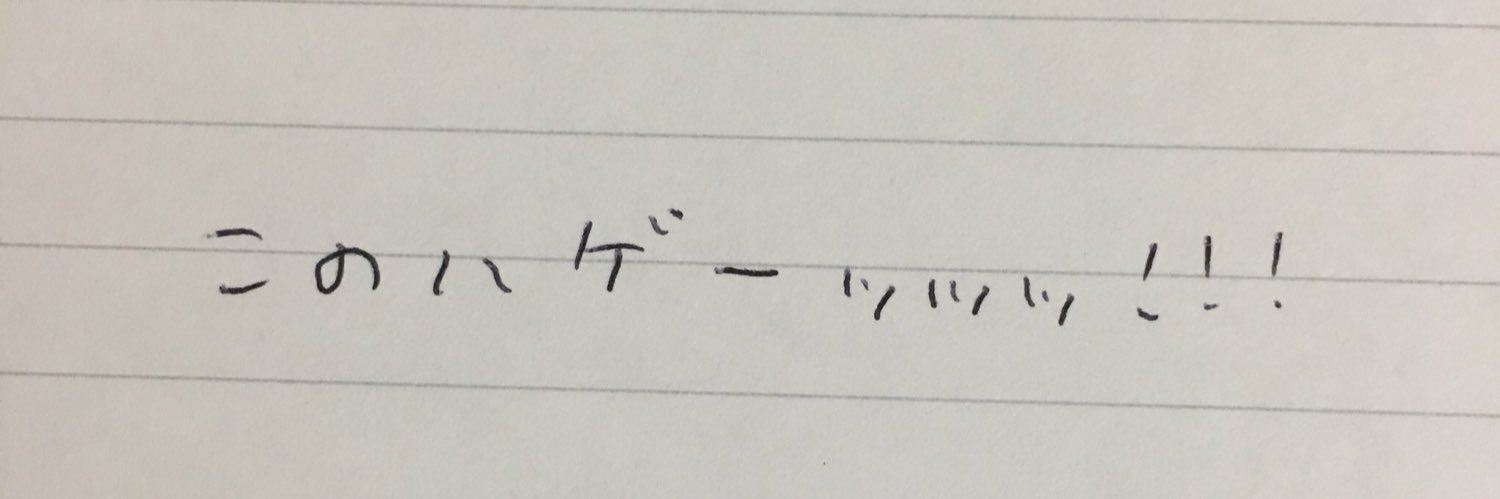 このハゲーッッッ!!!